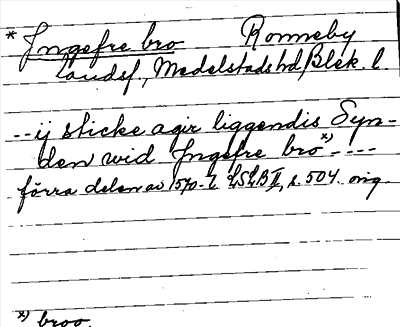 * Ingefre bro Ronneby
landsf., Medelstads hd, Blek. l.
-- ij sticke agir liggendis Syn-
den wid Ingefre bro x) ----
förra delen av 1570-t. LSLB II, s. 504. orig.
x) broo.